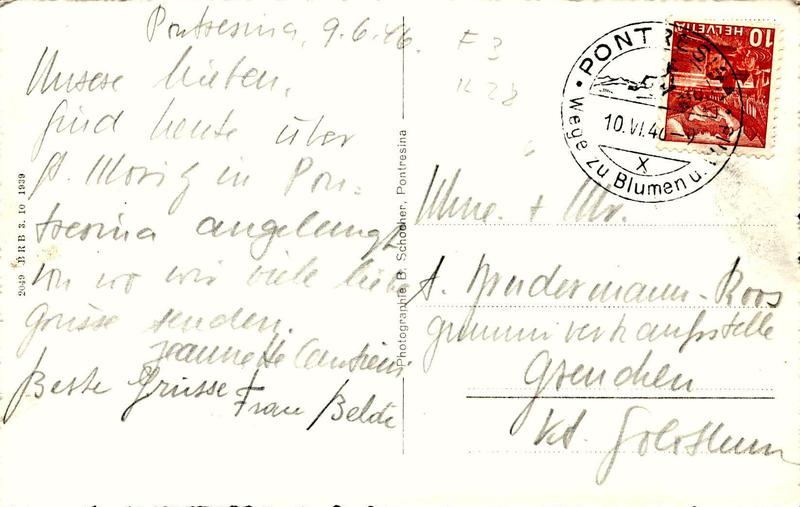 Pontresina, 9.6.46.
F 3
K 28
Unsere Lieben,
Sind heute über
St. Moritz in Pon-
tresina angelangt
von wo wir viele liebe
Grüsse senden.
Jeannette
Beste Grüsse Frau
2049 BRB 3. 10 1939
Photographie B. Schocher, Pontresina
HELVETIA
10
PONTRESINA
10.VI.46
X
Wege zu Blumen u.
Mme. + Mr.
A. Bindermann-Roos
Gummiverkaufsstelle
Grenchen
Kt. Solothurn